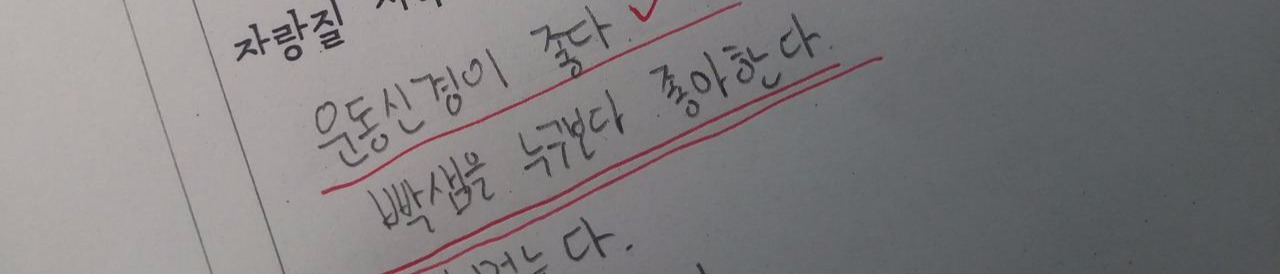 자랑질
운동신경이 좋다.
빡샘을 누구보다 좋아한다.
는다.